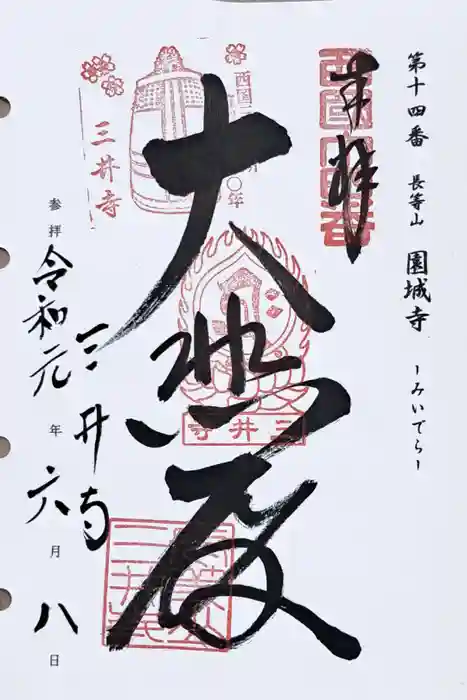 第十四番 長等山 園城寺 ーみいでらー
奉拝
西国十四番
西国
〇年
大悲殿
三井寺
三井寺
三井寺
参拝 令和元年六月八日